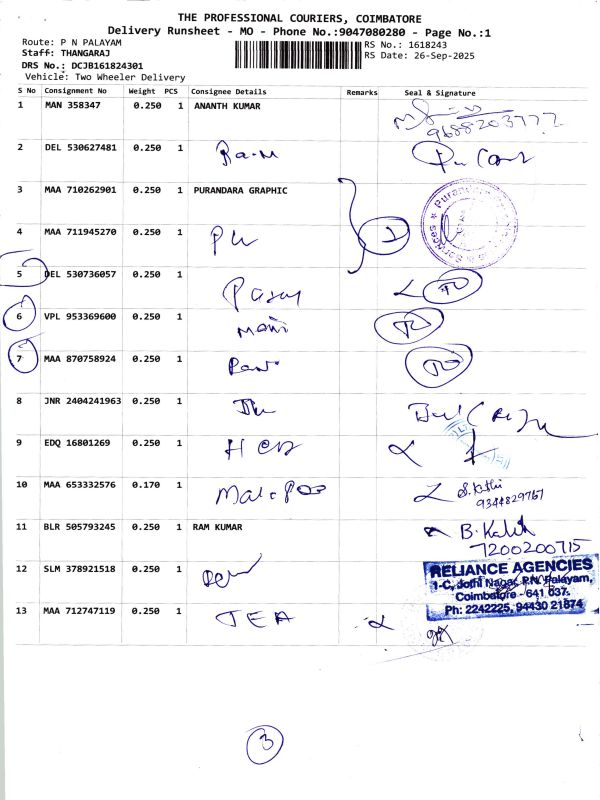 THE PROFESSIONAL COURIERS, COIMBATORE
Delivery Runsheet - MO - Phone No.:9047080280 - Page No.:1
Route: P N PALAYAM
RS No.: 1618243
Staff: THANGARAJ
RS Date: 26-Sep-2025
DRS No.: DCJB161824301
Vehicle: Two Wheeler Delivery
S No Consignment No Weight PCS Consignee Details Remarks Seal & Signature
1 MAN 358347 0.250 1 ANANTH KUMAR
9688203777
2 DEL 530627481 0.250 1
3 MAA 710262901 0.250 1 PURANDARA GRAPHIC
4 MAA 711945270 0.250 1
2
5 DEL 530736057 0.250 1
6 VPL 953369600 0.250 1
Mani
7 MAA 870758924 0.250 1
8 JNR 2404241963 0.250 1
9 EDQ 16801269 0.250 1
10 MAA 653332576 0.170 1
S. Kathi
9344829767
11 BLR 505793245 0.250 1 RAM KUMAR
B. Kalith
7200200715
12 SLM 378921518 0.250 1
RELIANCE AGENCIES
1-C, Jothi Nagar, P.N. Palayam,
Coimbatore - 641 037.
Ph: 2242225, 94430 21874
13 MAA 712747119 0.250 1
TEA
3